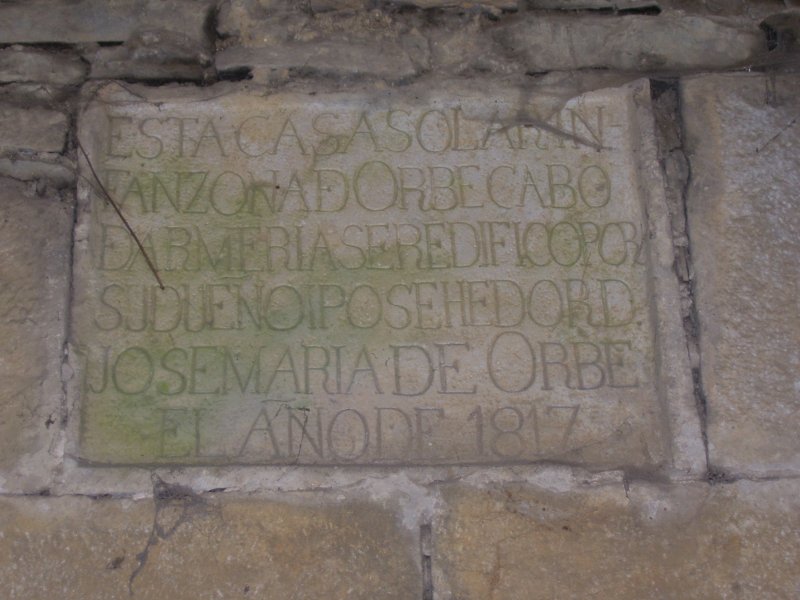 ESTACASASOLARIN-
FANZONADORBECABO
DARMERIASEREDIFICOPOR
SUDUEÑOIPOSEHEDORD
JOSEMARIADEORBE
ELAÑODE 1817